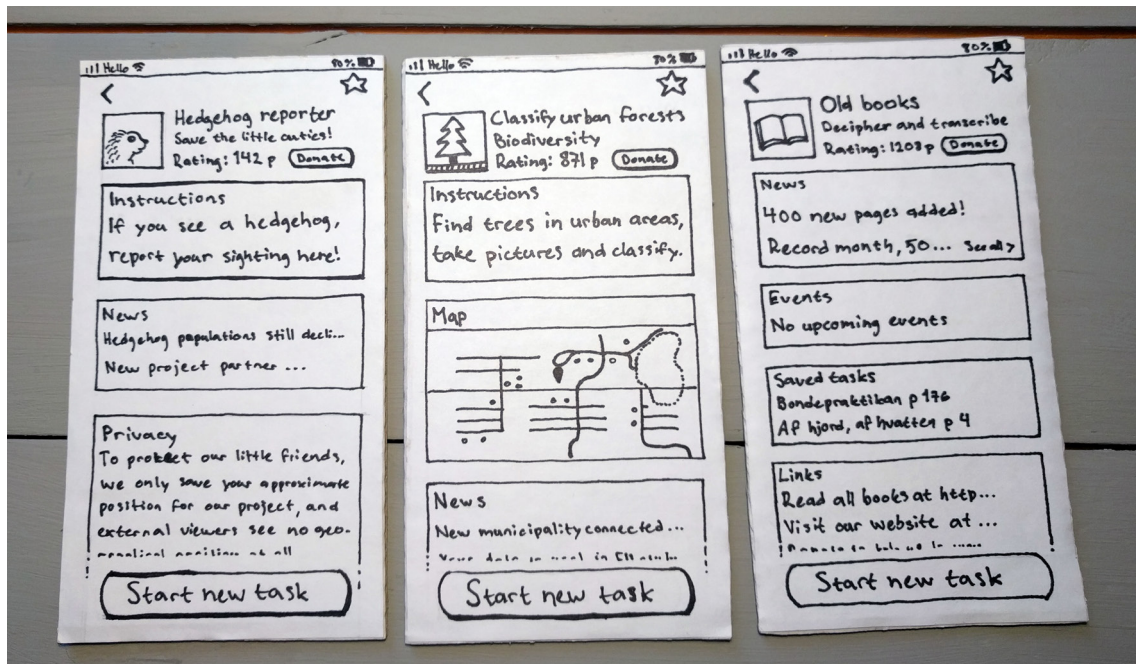 Hello
80%
Hedgehog reporter
Save the little cuties!
Rating: 142 p
Donate
Instructions
If you see a hedgehog,
report your sighting here!
News
Hedgehog populations still decli...
New project partner ...
Privacy
To protect our little friends,
we only save your approximate
position for our project, and
external viewers see no geo-
Start new task
Hello
70%
Classify urban forests
Biodiversity
Rating: 871 p
Donate
Instructions
Find trees in urban areas,
take pictures and classify.
Map
News
New municipality connected...
Start new task
Hello
80%
Old books
Decipher and transcribe
Rating: 1208 p
Donate
News
400 new pages added!
Record month, 50... See all >
Events
No upcoming events
Saved tasks
Bondepraktikan p 176
Af hjord, af hvatten p 4
Links
Read all books at http...
Visit our website at ...
Start new task